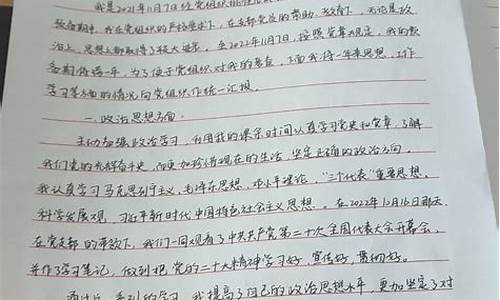 我是2021年11月7日经党组织批准
致预备期中,我在党组织的严格要求下,在支部党员的帮助、教育下,无论是政
治上、思想上都取得了较大进步。至2022年11月7日,按照党章规定,我的预
备期将满一年。为了便于党组织对我的考查,下面我将一年来思想、工作
学习等方面的情况向党组织作统一汇报。
一、政治思想方面。
主动加强政治学习,利用我的课余时间认真学习党史和党章,了解
我们党的光辉奋斗史,从而更加珍惜现在的生活,坚定正确的政治方向。
我认真学习马克思列宁主义、毛泽东思想、邓小平理论、“三个代表”重要思想、
科学发展观、习近平新时代中国特色社会主义思想。在2022年10月16日那天,
在党支部的带领下,我们一同观看了中共共产党第二十次全国代表大会开幕会,
并作了学习笔记,做到把党的二十大精神学习好、宣传好、贯彻好。
通过这一系列的学习,我提高了自己的政治思想水平,更加坚定了对